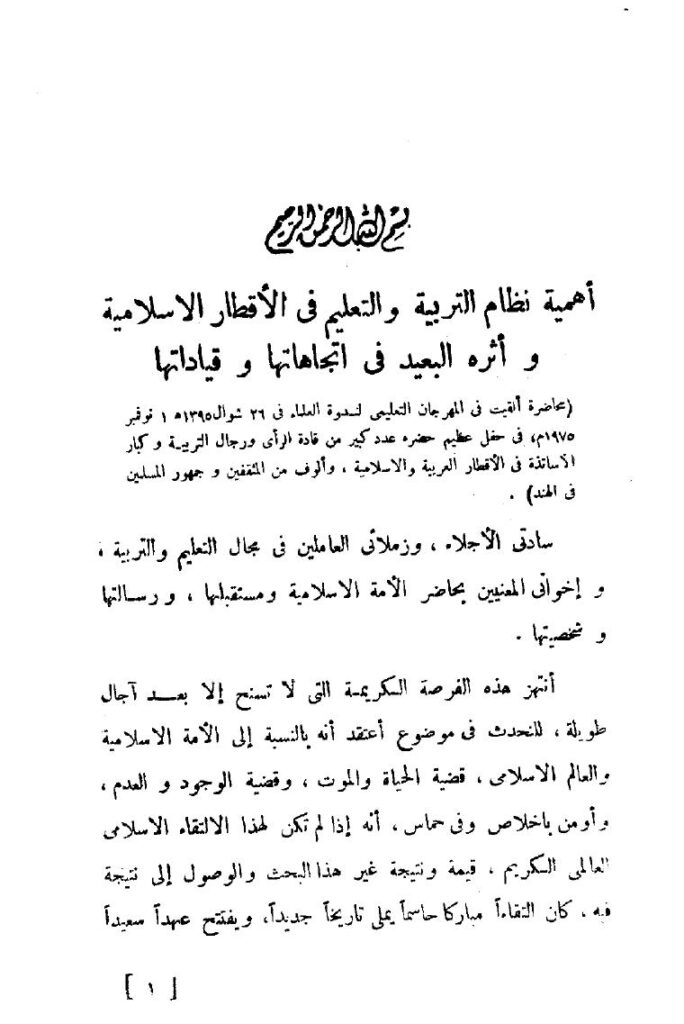 بسم الله الرحمن الرحيم
أهمية نظام التربية والتعليم فى الأقطار الاسلامية
و أثره البعيد فى اتجاهاتها و قياداتها
(محاضرة ألقيت فى المهرجان التعليمى لندوة العلماء فى ٢٦ شوال ١٣٩٥ھ ١ نوفمبر
١٩٧٥م، فى حفل عظيم حضره عدد كبير من قادة الرأى ورجال التربية و كبار
الأساتذة فى الأقطار العربية والاسلامية ، وألوف من المثقفين و جمهور المسلمين
فى الهند) .
سادتى الأجلاء ، وزملائى العاملين فى مجال التعليم والتربية ،
و إخوانى المعنيين بحاضر الأمة الاسلامية ومستقبلها ، ورسالتها
و شخصيتها .
أنتهز هذه الفرصة الكريمة التى لا تسنح إلا بعد آجال
طويلة ، للتحدث فى موضوع أعتقد أنه بالنسبة إلى الأمة الاسلامية
والعالم الاسلامى ، قضية الحياة والموت ، وقضية الوجود و العدم ،
وأومن باخلاص وفى حماس ، أنه إذا لم تكن لهذا الالتقاء الاسلامى
العالمى الكريم ، قيمة ونتيجة غير هذا البحث والوصول إلى نتيجة
فيه ، كان التقاءاً مباركا حاسماً يملى تاريخاً جديداً، ويفتتح عهداً سعيداً
[ ١ ]